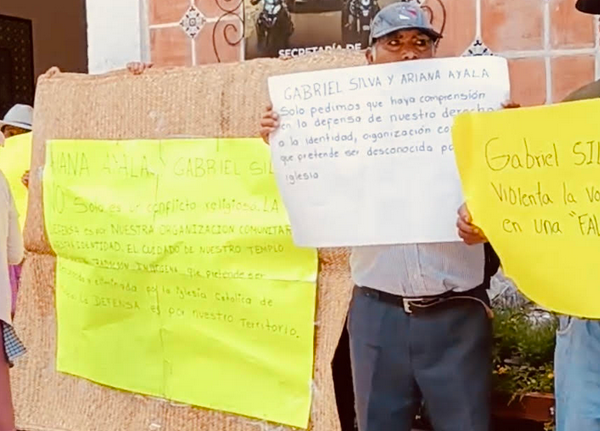 SECRETARÍA DE
GABRIEL SILVA Y ARIANA AYALA
Solo pedimos que haya comprensión
en la defensa de nuestro derecho
a la identidad, organización co
que pretende ser desconocida po
iglesia
ANA AYALA Y GABRIEL SIL
NO Solo es un conflicto religioso. LA
ES POR NUESTRA ORGANIZACIÓN COMUNITAR
IDENTIDAD, EL CUIDADO DE NUESTRO TEMPLO
que pretende ser
eliminada por la iglesia Catolica de
la DEFENSA es por nuestro Territorio.
Gabriel SIL
Violenta la vo
en una "FAL